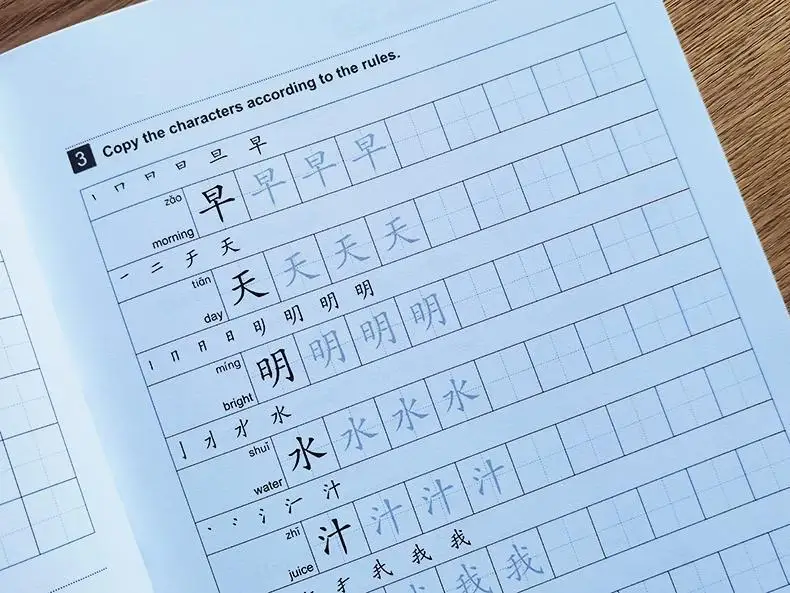 3 Copy the characters according to the rules.
丨 冂 日 日 旦 早
zǎo 早 早 早 早
morning
一 二 于 天
tiān 天 天 天 天
day
丨 冂 日 日 明 明 明 明
míng 明 明 明 明
bright
亅 水 水 水
shuǐ 水 水 水 水
water
丶 冫 氵 汁 汁
zhī 汁 汁 汁 汁
juice
我 我 我
我 我